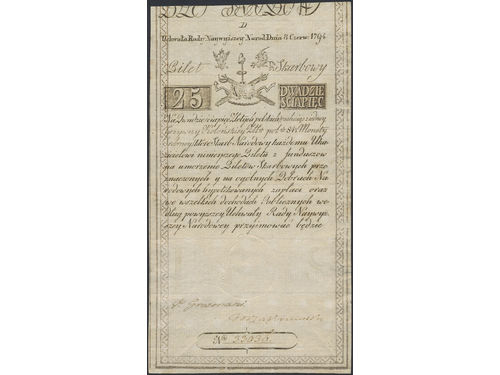 D
Uchwała Rady Naywyższey Narod: Dnia 8 Czerw: 1794
Bilet Skarbowy
25 DWADZIE
ŚCIAPIĘĆ
Na Dwadzieściapięć Złotych polskich
Grzywny Kolońskiey Złtt: pol: Monety
który Skarb Narodowy każdemu Oka-
zicielowi ninieyszego Biletu z funduszow
na umorzenie Biletów Skarbowych prze-
znaczonych y na ogolnych Dobrach Na-
rodowych hypotekowanych zapłaci oraz
we wszelkich dochodach Publicznych we-
dług powyższey Uchwały Rady Naywy-
ższey Narodowey przyjmować będzie
No